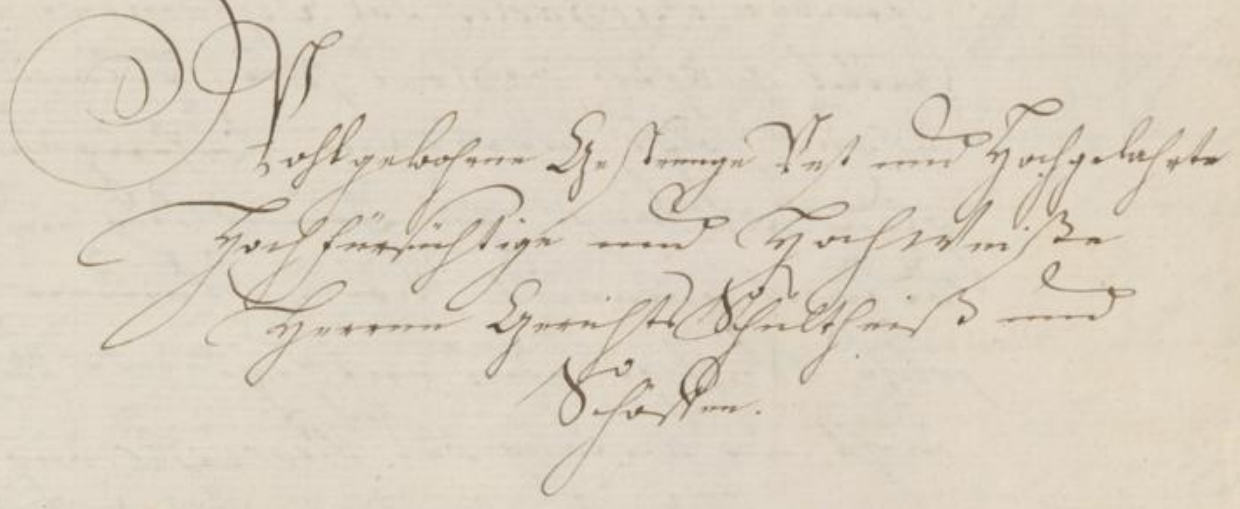 Wohlgebohrne Gestrenge Vest und Hochgelahrte
Hochfürsichtige und Hochweiße
Herren Gerichts Schultheiß und
Schöffen.